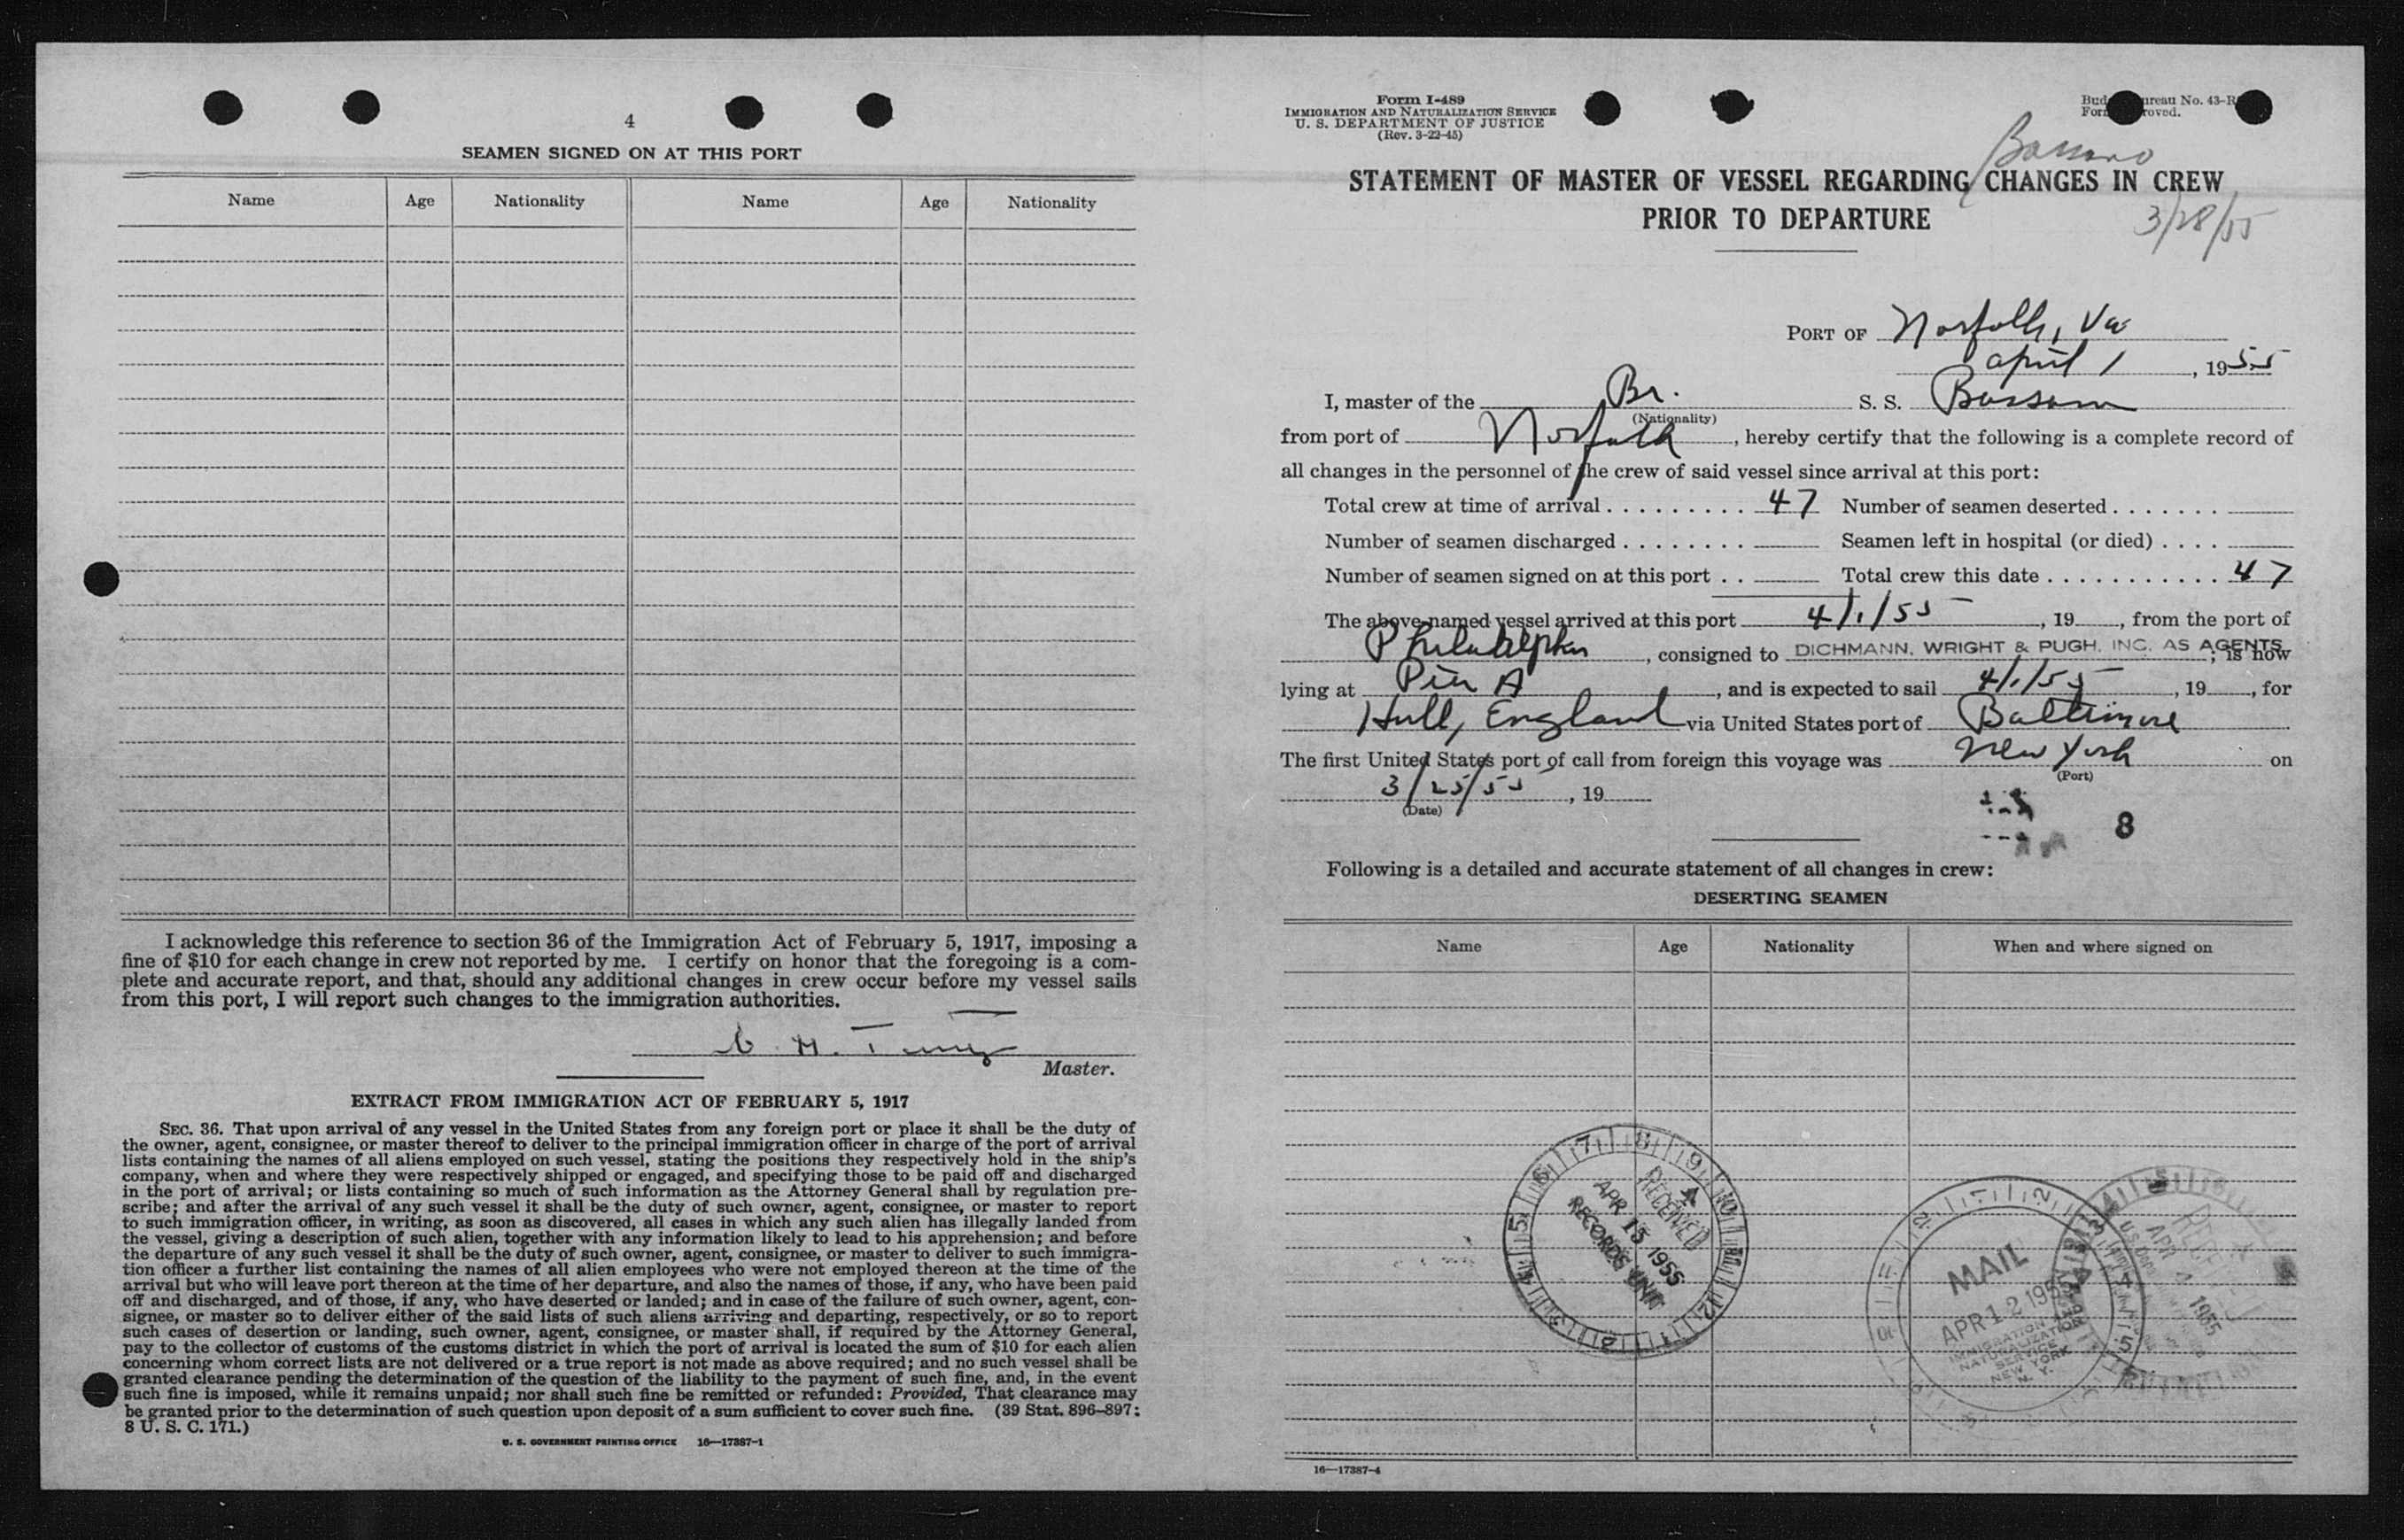 4
SEAMEN SIGNED ON AT THIS PORT
Name Age Nationality Name Age Nationality
I acknowledge this reference to section 36 of the Immigration Act of February 5, 1917, imposing a
fine of $10 for each change in crew not reported by me. I certify on honor that the foregoing is a com-
plete and accurate report, and that, should any additional changes in crew occur before my vessel sails
from this port, I will report such changes to the immigration authorities.
Master.
EXTRACT FROM IMMIGRATION ACT OF FEBRUARY 5, 1917
SEC. 36. That upon arrival of any vessel in the United States from any foreign port or place it shall be the duty of
the owner, agent, consignee, or master thereof to deliver to the principal immigration officer in charge of the port of arrival
lists containing the names of all aliens employed on such vessel, stating the positions they respectively hold in the ship's
company, when and where they were respectively shipped or engaged, and specifying those to be paid off and discharged
in the port of arrival; or lists containing so much of such information as the Attorney General shall by regulation pre-
scribe; and after the arrival of any such vessel it shall be the duty of such owner, agent, consignee, or master to report
to such immigration officer, in writing, as soon as discovered, all cases in which any such alien has illegally landed from
the vessel, giving a description of such alien, together with any information likely to lead to his apprehension; and before
the departure of any such vessel it shall be the duty of such owner, agent, consignee, or master to deliver to such immigra-
tion officer a further list containing the names of all alien employees who were not employed thereon at the time of the
arrival but who will leave port thereon at the time of her departure, and also the names of those, if any, who have been paid
off and discharged, and of those, if any, who have deserted or landed; and in case of the failure of such owner, agent, con-
signee, or master so to deliver either of the said lists of such aliens arriving and departing, respectively, or so to report
such cases of desertion or landing, such owner, agent, consignee, or master shall, if required by the Attorney General,
pay to the collector of customs of the customs district in which the port of arrival is located the sum of $10 for each alien
concerning whom correct lists are not delivered or a true report is not made as above required; and no such vessel shall be
granted clearance pending the determination of the question of the liability to the payment of such fine, and, in the event
such fine is imposed, while it remains unpaid; nor shall such fine be remitted or refunded: Provided, That clearance may
be granted prior to the determination of such question upon deposit of a sum sufficient to cover such fine. (39 Stat. 896–897;
8 U. S. C. 171.)
U. S. GOVERNMENT PRINTING OFFICE 16—17387-1
Form I-489
IMMIGRATION AND NATURALIZATION SERVICE
U. S. DEPARTMENT OF JUSTICE
(Rev. 3-22-45)
Bassano
STATEMENT OF MASTER OF VESSEL REGARDING CHANGES IN CREW
PRIOR TO DEPARTURE
3/28/55
PORT OF Norfolk, Va
april 1, 1955
I, master of the Br. S. S. Bassano
(Nationality)
from port of Norfolk, hereby certify that the following is a complete record of
all changes in the personnel of the crew of said vessel since arrival at this port:
Total crew at time of arrival . . . . . . . . . 47 Number of seamen deserted . . . . . . .
Number of seamen discharged . . . . . . . . Seamen left in hospital (or died) . . . .
Number of seamen signed on at this port . . Total crew this date . . . . . . . . . . . 47
The above-named vessel arrived at this port 4/1/55, 19, from the port of
Philadelphia, consigned to DICHMANN, WRIGHT & PUGH, INC. AS AGENTS; is now
lying at Pier A, and is expected to sail 4/1/55, 19, for
Hull, England via United States port of Baltimore
The first United States port of call from foreign this voyage was New York on
(Port)
3/25/55, 19
(Date)
8
Following is a detailed and accurate statement of all changes in crew:
DESERTING SEAMEN
Name Age Nationality When and where signed on
RECEIVED
APR 15 1955
RECORDS UNIT
MAIL
APR 12 1955
IMMIGRATION &
NATURALIZATION
SERVICE
NEW YORK
N. Y.
APR 4 1955
16—17387-4